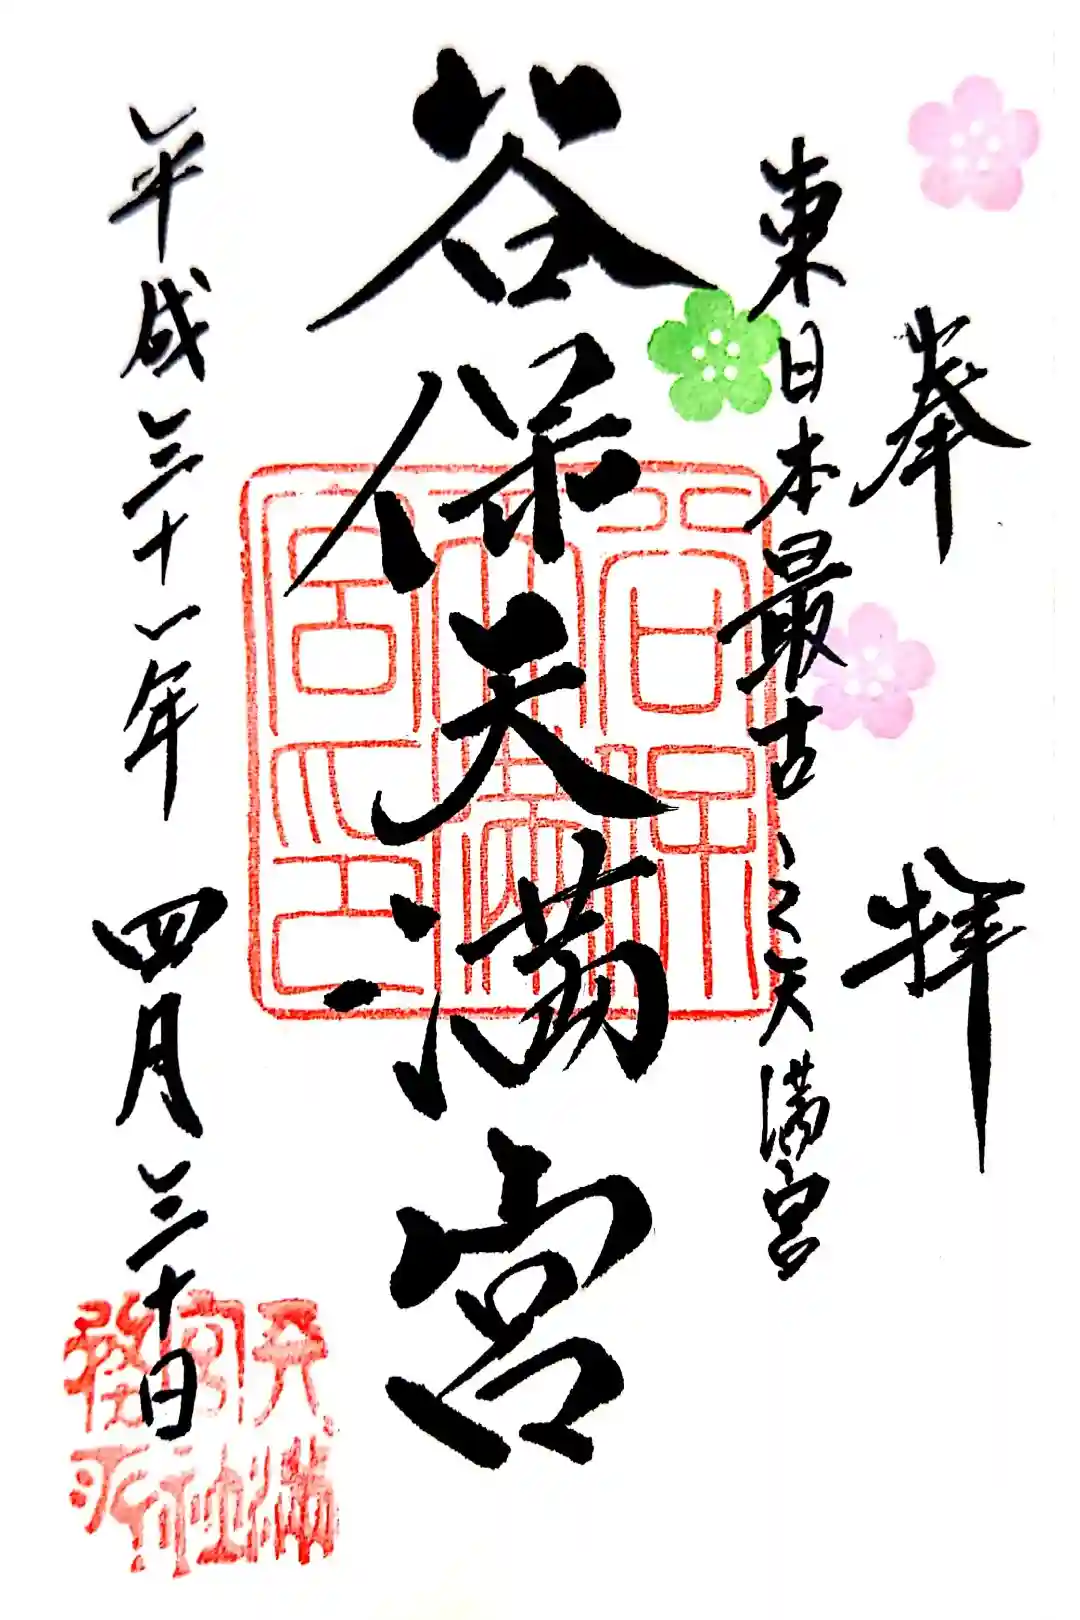 奉拝
東日本最古之天満宮
谷保天満宮
谷保天満宮印
平成三十一年四月三十日
天満宮社務所